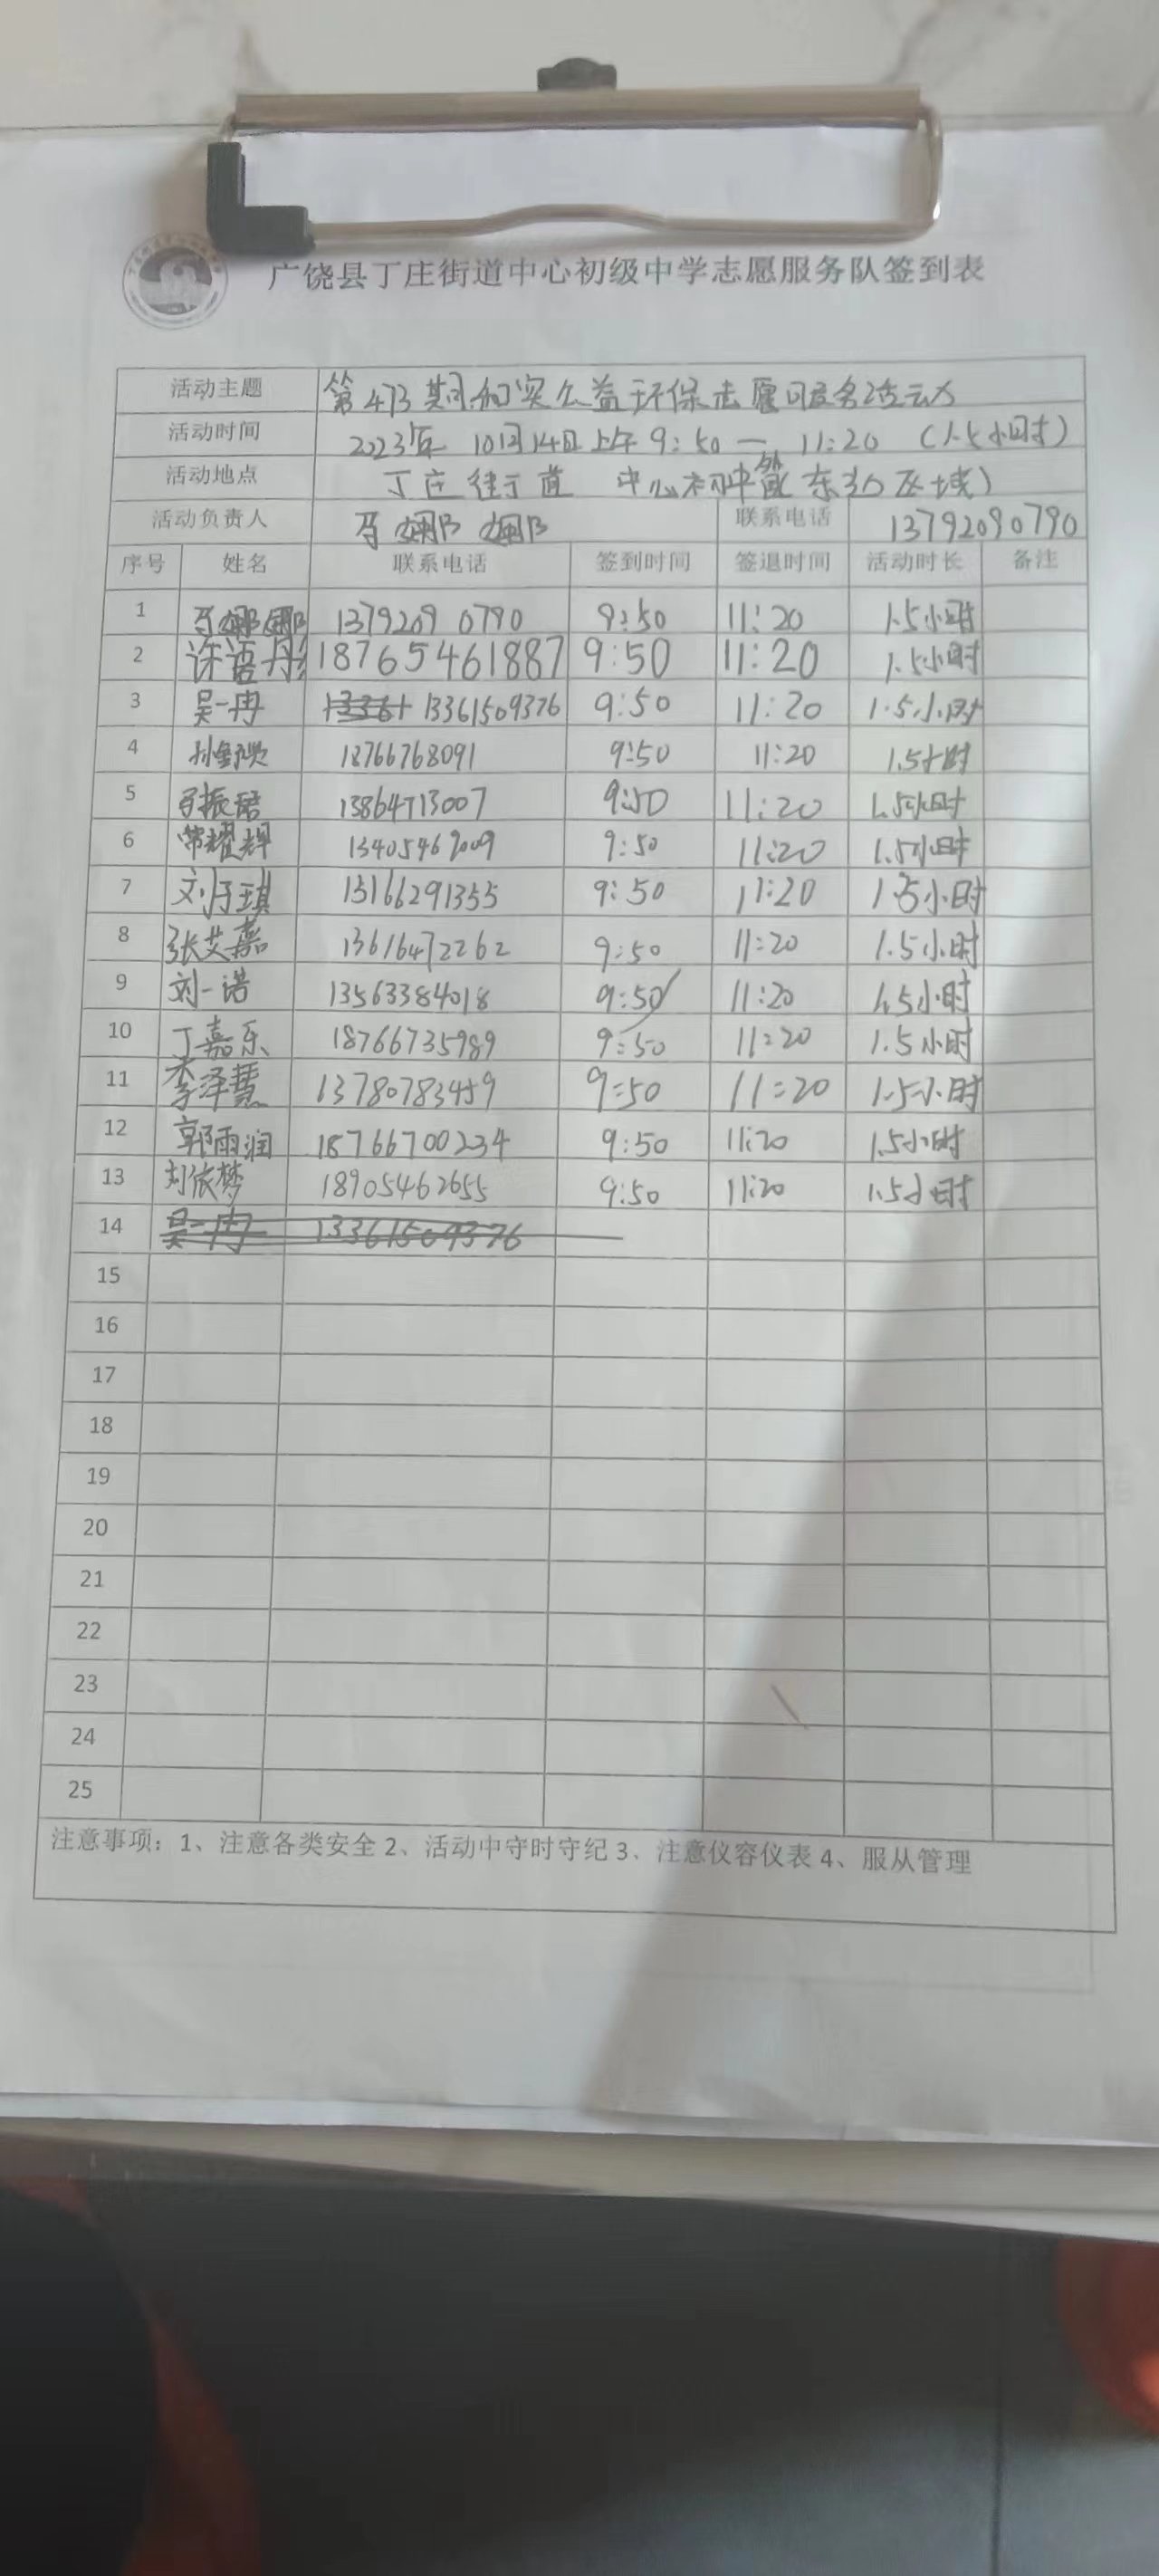 广饶县丁庄街道中心初级中学志愿服务队签到表
活动主题 第473期 公益环保志愿服务活动
活动时间 2023年 10月14日上午 9:50 — 11:20 (1.5小时)
活动地点 丁庄街道 中心初中 东 区域)
活动负责人 娜娜 联系电话 13792090790
序号 姓名 联系电话 签到时间 签退时间 活动时长 备注
1 娜娜 13792090790 9:50 11:20 1.5小时
2 许语丹 18765461887 9:50 11:20 1.5小时
3 吴一冉 13361509376 9:50 11:20 1.5小时
4 13766768091 9:50 11:20 1.5小时
5 振 13864713007 9:50 11:20 1.5小时
6 常耀辉 13405469009 9:50 11:20 1.5小时
7 刘于琪 13166291355 9:50 11:20 1.5小时
8 张艾嘉 13616472262 9:50 11:20 1.5小时
9 刘一诺 13563384018 9:50 11:20 1.5小时
10 丁嘉乐 18766735989 9:50 11:20 1.5小时
11 李泽慧 13780783459 9:50 11:20 1.5小时
12 郭雨润 18766700234 9:50 11:20 1.5小时
13 刘依梦 18905462655 9:50 11:20 1.5小时
14 吴一冉 13361509376
15
16
17
18
19
20
21
22
23
24
25
注意事项：1、注意各类安全 2、活动中守时守纪 3、注意仪容仪表 4、服从管理